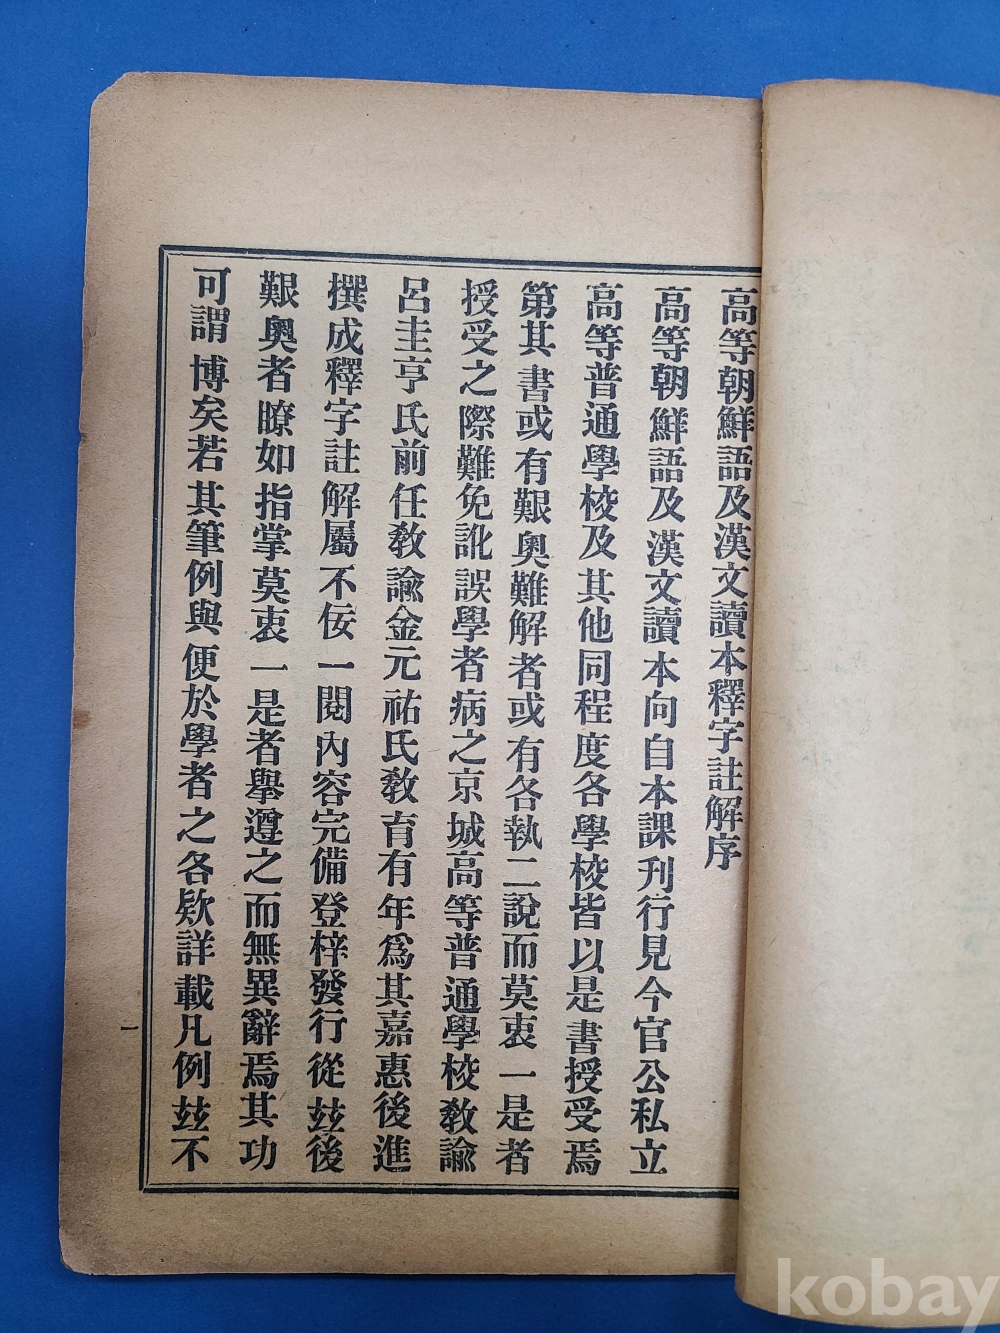 高等朝鮮語及漢文讀本釋字註解序
高等朝鮮語及漢文讀本向自本課刊行見今官公私立
高等普通學校及其他同程度各學校皆以是書授受焉
第其書或有艱奧難解者或有各執二說而莫衷一是者
授受之際難免訛誤學者病之京城高等普通學校敎諭
呂圭亨氏前任敎諭金元祐氏敎育有年爲其嘉惠後進
撰成釋字註解屬不佞一閱內容完備登梓發行從玆後
艱奧者瞭如指掌莫衷一是者擧遵之而無異辭焉其功
可謂博矣若其筆例與便於學者之各欵詳載凡例玆不
一
kobay